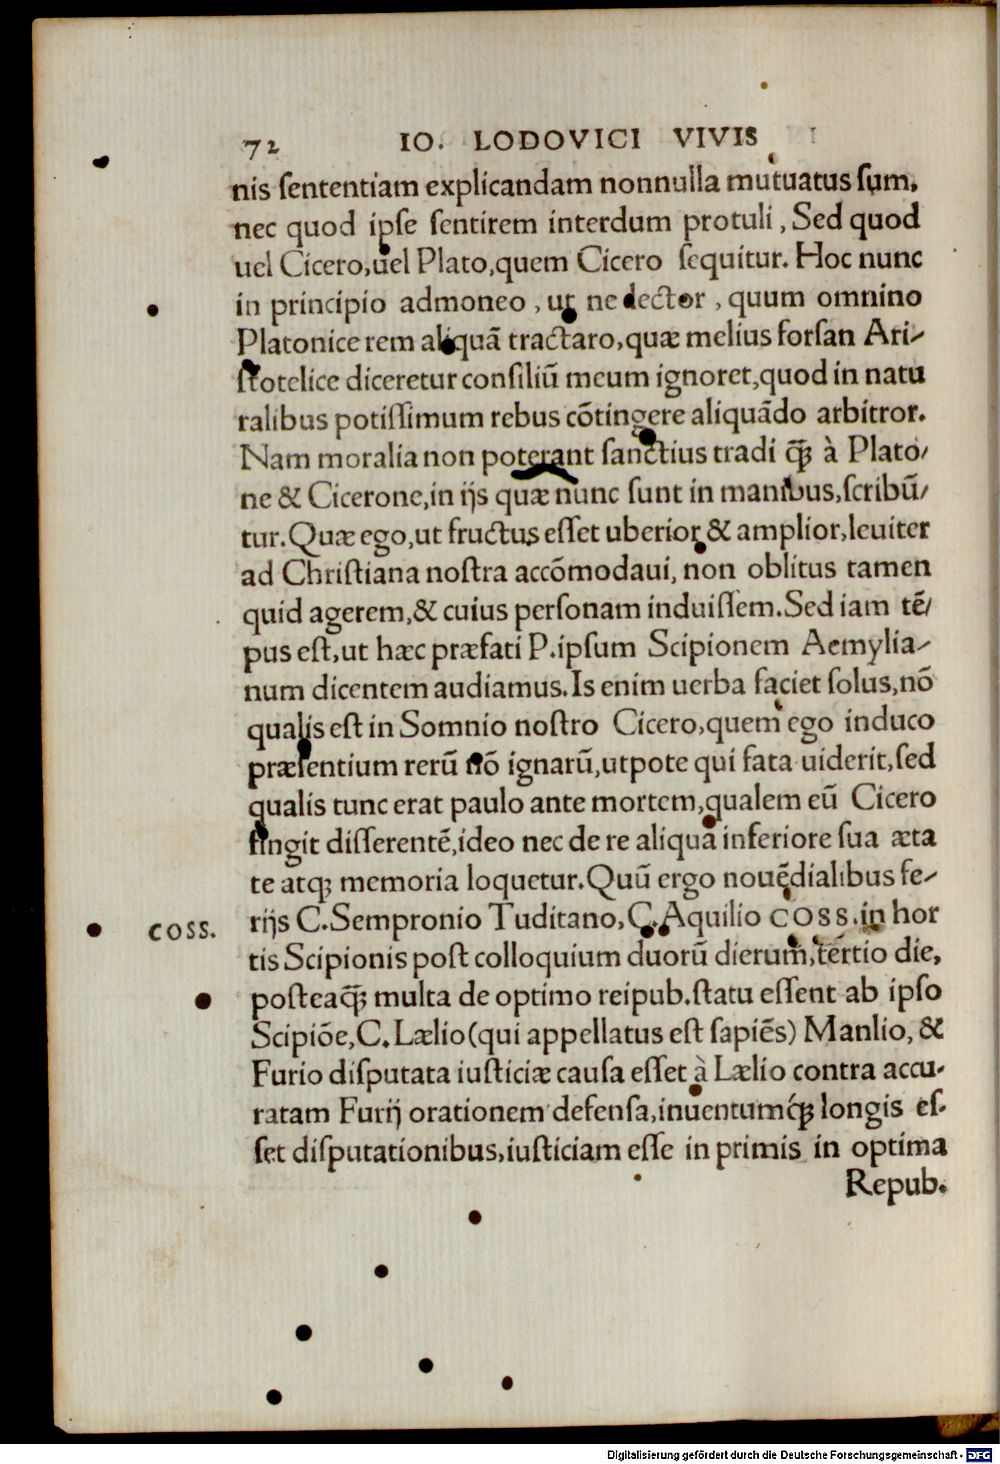 72 IO. LODOVICI VIVIS
nis sententiam explicandam nonnulla mutuatus sum,
nec quod ipse sentirem interdum protuli, Sed quod
uel Cicero, uel Plato, quem Cicero sequitur. Hoc nunc
in principio admoneo, ut ne dector, quum omnino
Platonice rem aliquā tractaro, quæ melius forsan Ari-
stotelice diceretur consiliū meum ignoret, quod in natu
ralibus potissimum rebus cōtingere aliquādo arbitror.
Nam moralia non poterant sanctius tradi q̃ȝ à Plato/
ne & Cicerone, in ijs quæ nunc sunt in manibus, scribū/
tur. Quæ ego, ut fructus esset uberior & amplior, leuiter
ad Christiana nostra accōmodaui, non oblitus tamen
quid agerem, & cuius personam induissem. Sed iam tē/
pus est, ut hæc præfati P. ipsum Scipionem Aemylia-
num dicentem audiamus. Is enim uerba faciet solus, nō
qualis est in Somnio nostro Cicero, quem ego induco
præsentium rerū nō ignarū, utpote qui fata uiderit, sed
qualis tunc erat paulo ante mortem, qualem eū Cicero
fingit disserentē, ideo nec de re aliqua inferiore sua æta
te atqȝ memoria loquetur. Quū ergo nouēdialibus fe-
rijs C. Sempronio Tuditano, C. Aquilio COSS. in hor
COSS.
tis Scipionis post colloquium duorū dierum, tertio die,
posteaq̃ȝ multa de optimo reipub. statu essent ab ipso
Scipiōe, C. Lælio (qui appellatus est sapiēs) Manlio, &
Furio disputata iusticiæ causa esset à Lælio contra accu-
ratam Furij orationem defensa, inuentumq́ȝ longis es-
set disputationibus, iusticiam esse in primis in optima
Repub.
Digitalisierung gefördert durch die Deutsche Forschungsgemeinschaft - DFG